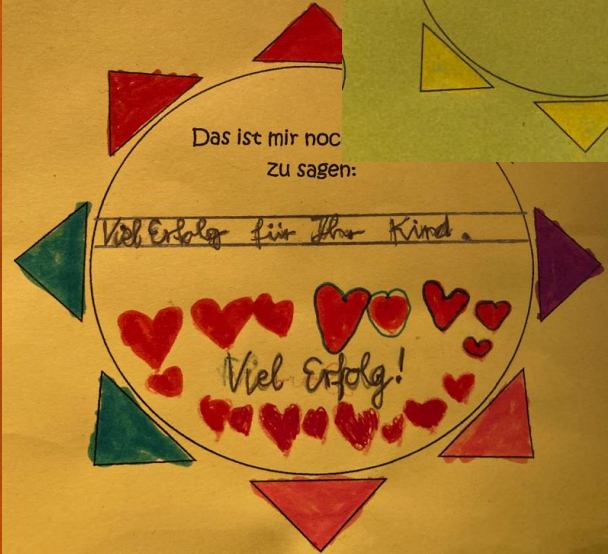 Das ist mir noc
zu sagen:
Viel Erfolg für Ihr Kind.
Viel Erfolg!